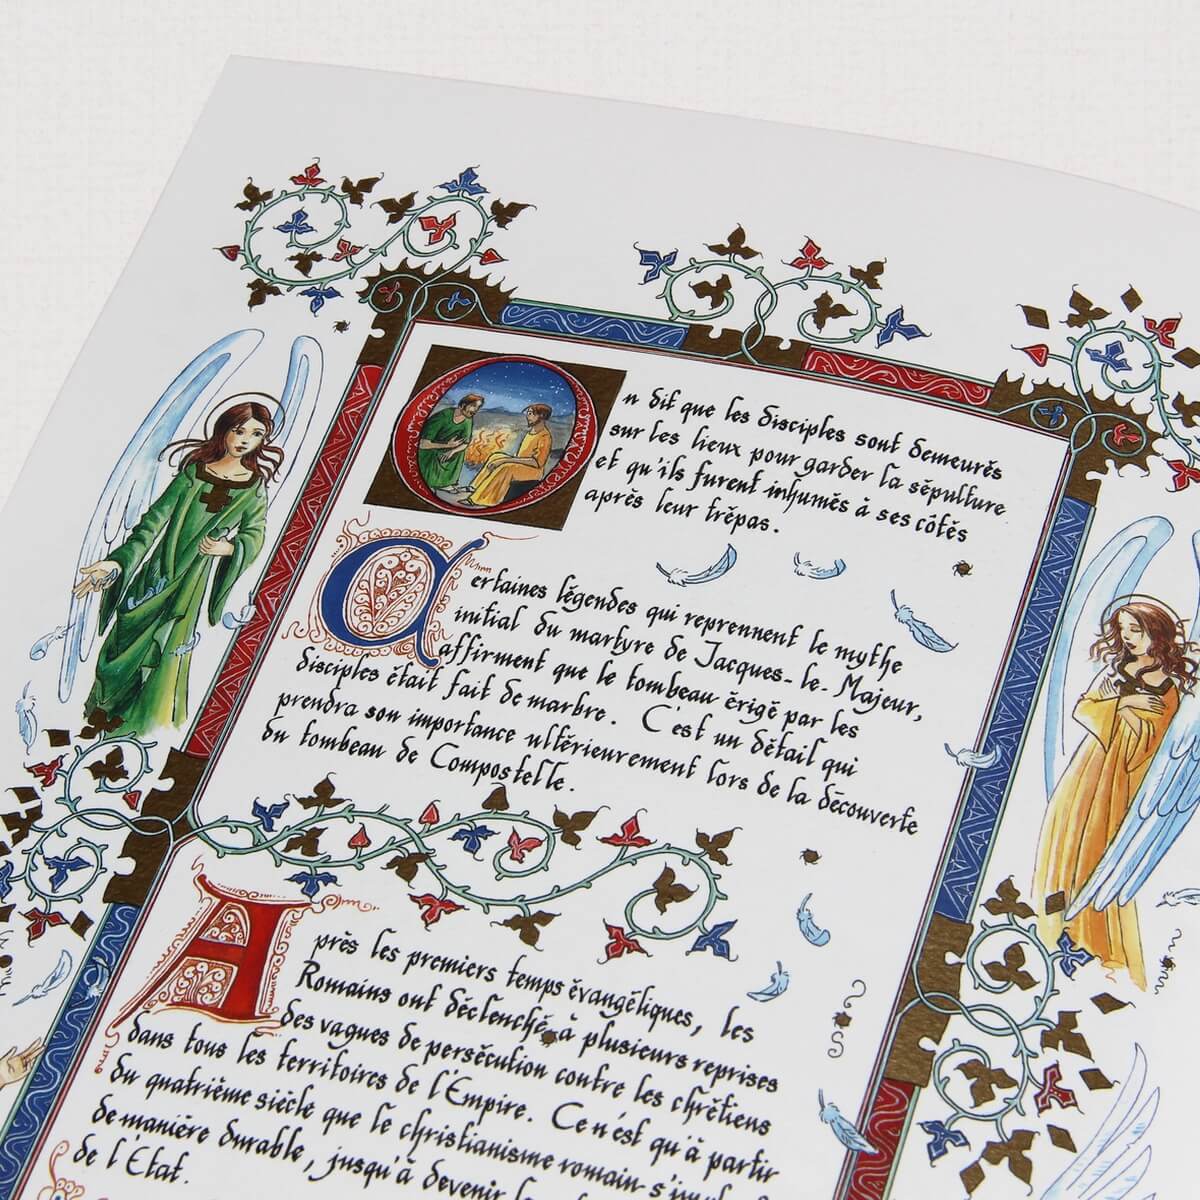 On dit que les disciples sont demeurés
sur les lieux pour garder la sépulture
et qu'ils furent inhumés à ses côtés
après leur trépas.
Certaines légendes qui reprennent le mythe
initial du martyre de Jacques-le-Majeur,
affirment que le tombeau érigé par les
disciples était fait de marbre. C'est un détail qui
prendra son importance ultérieurement lors de la découverte
du tombeau de Compostelle.
Après les premiers temps évangéliques, les
Romains ont déclenché à plusieurs reprises
des vagues de persécution contre les chrétiens
dans tous les territoires de l'Empire. Ce n'est qu'à partir
du quatrième siècle que le christianisme romain
de manière durable, jusqu'à devenir
de l'État.